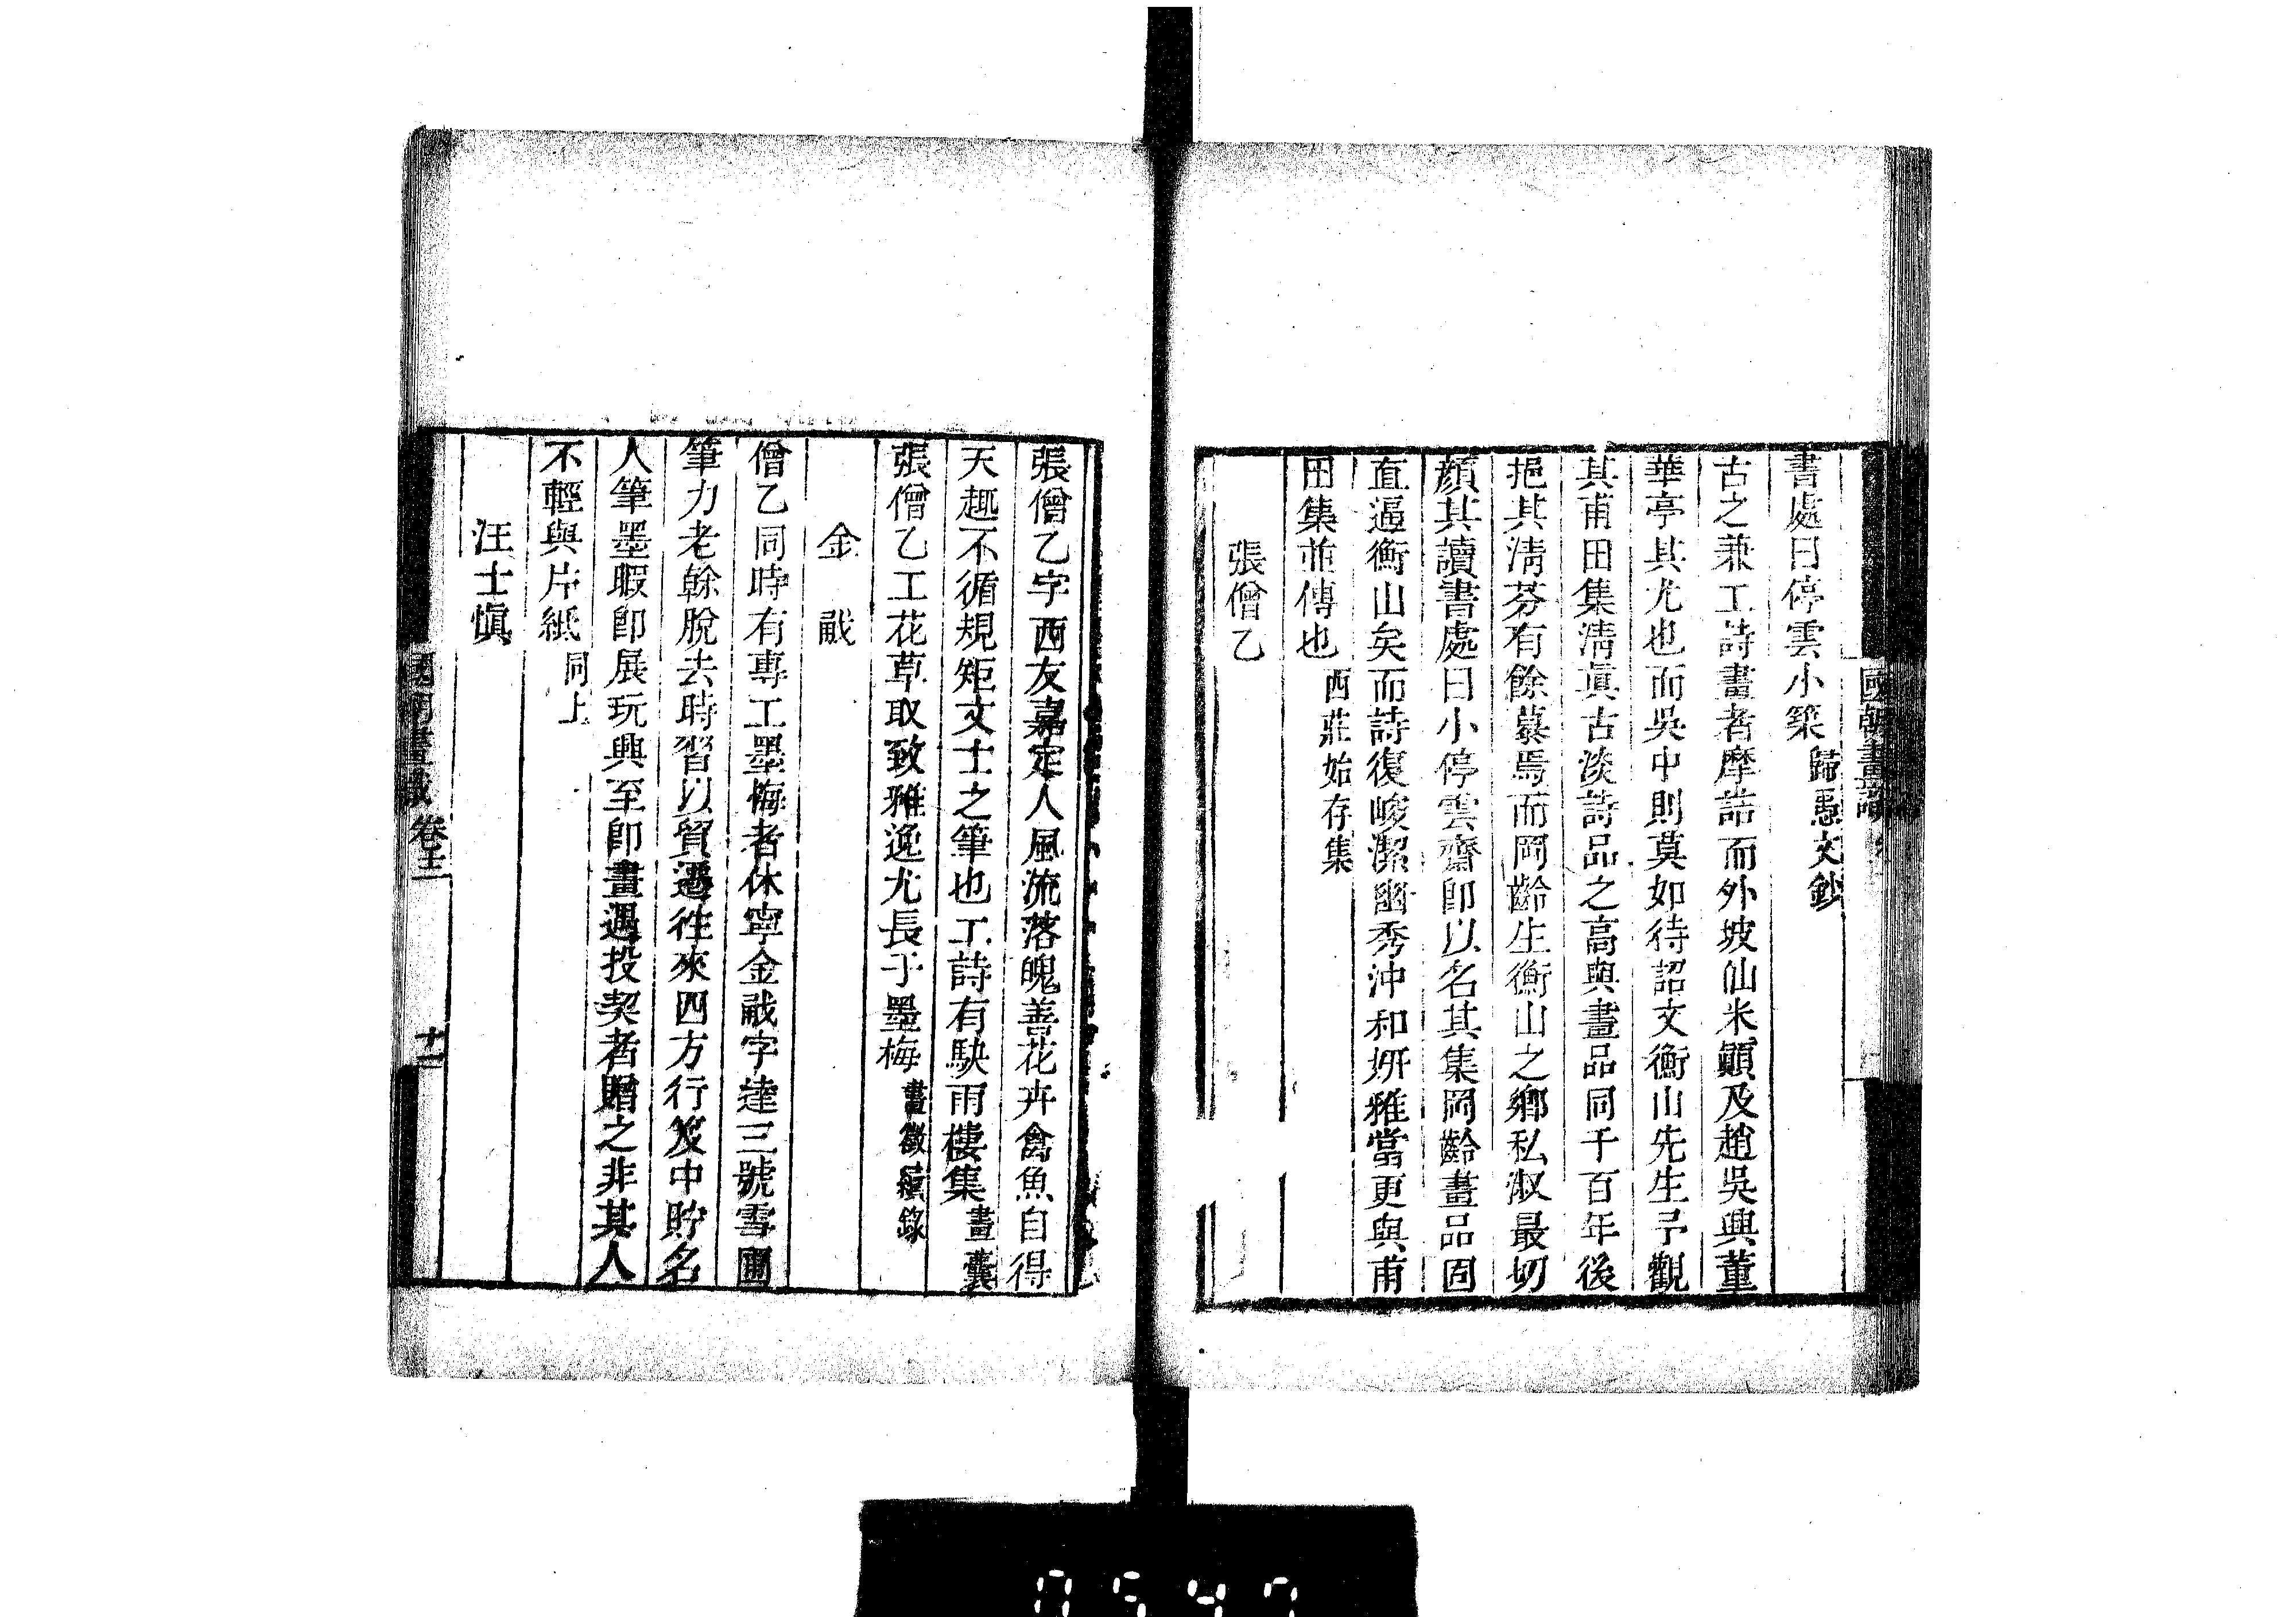 國朝畫識
書處曰停雲小築 歸愚文鈔
古之兼工詩畫者摩詰而外坡仙米顛及趙吳興董
華亭其尤也而吳中則莫如待詔文衡山先生予觀
其甫田集清眞古淡詩品之高與畫品同千百年後
挹其淸芬有餘慕焉而岡齡生衡山之鄉私淑最切
顏其讀書處曰小停雲齋卽以名其集岡齡畫品固
直逼衡山矣而詩復峻潔幽秀沖和妍雅當更與甫
田集並傳也 西莊始存集
張僧乙
張僧乙字西友嘉定人風流落魄善花卉禽魚自得
天趣不循規矩文士之筆也工詩有駃雨樓集 畫囊
張僧乙工花草取致雅逸尤長于墨梅 畫徵續錄
金 㦸
僧乙同時有專工墨梅者休寧金㦸字逵三號雪圃
筆力老榦脫去時習以貿遷往來四方行笈中貯名
人筆墨暇卽展玩興至卽畫遇投契者贈之非其人
不輕與片紙 同上
汪士愼
國朝畫識 卷十二 十二
0547